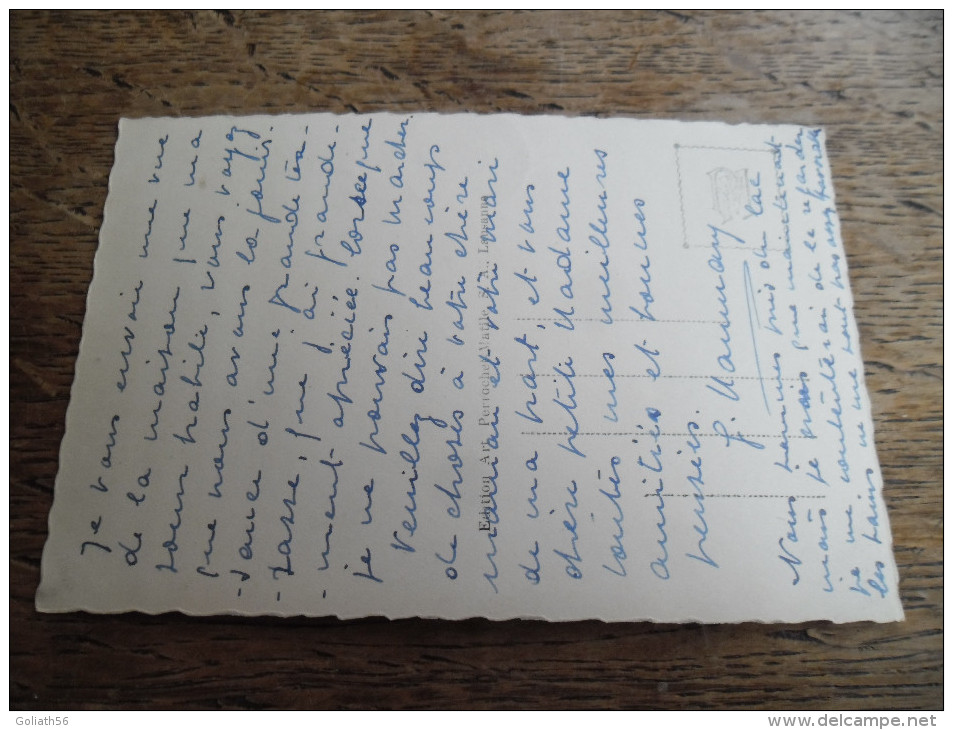 Je vous envoie une vue
de la maison que ma
soeur habite, vous voyez
que nous avons la jouis-
-sance d'une grande ter-
-rasse, que j'ai grande-
-ment appréciée lorsque
je ne pouvais pas marcher.
Veuillez dire beaucoup
de choses à votre chère
maman et votre mari
de ma part, et vous
chère petite Madame
toutes mes meilleures
amitiés et bonnes
pensées.
Nous sommes près du lac
mais je ne puis maintenant
que me contenter de le regarder
les bains ne me sont pas
Edition Art. Perrochet Lausanne
Goliath56
www.delcampe.net